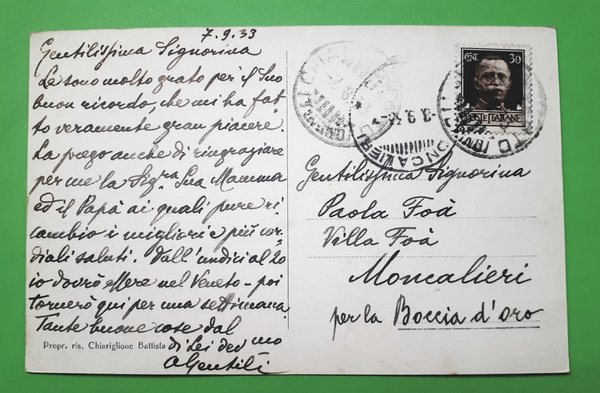 7.9.33
Gentilissima Signorina
Le sono molto grato per il Suo
buon ricordo, che mi ha fat
to veramente gran piacere.
La prego anche di ringraziare
per me la Sig.ra Sua Mamma
ed il Papà ai quali pure ri
cambio i migliori e più cor
diali saluti. Dall'undici al 20
io dovrò essere nel Veneto - poi
tornerò qui per una settimana
Tante buone cose dal
di Lei dev mo
Gentili
Propr. ris. Chiariglione Battista
CENT. 30
POSTE ITALIANE
MONCALIERI
Gentilissima Signorina
Paola Foà
Villa Foà
Moncalieri
per la Boccia d'oro